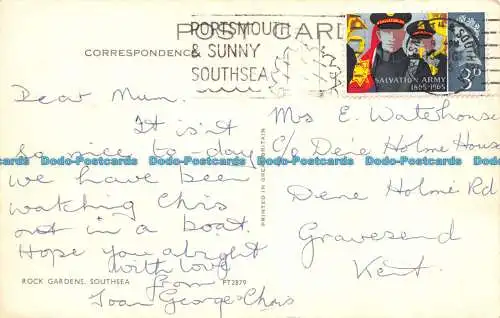 PORTSMOUTH
& SUNNY
SOUTHSEA
POST CARD
CORRESPONDENCE
SALVATION ARMY
1865-1965
3D
Dear Mum.
It isn't
so nice to-day
we have been
watching Chris
out in a boat.
Hope you alright
with love
from
Joan George & Chris
Mrs E. Waterhouse
C/o Dene Holme House
Dene Holme Rd
Gravesend
Kent.
PRINTED IN GREAT BRITAIN
ROCK GARDENS, SOUTHSEA PT2879
Dodo-Postcards Dodo-Postcards Dodo-Postcards Dodo-Postcards Dodo-Postcards